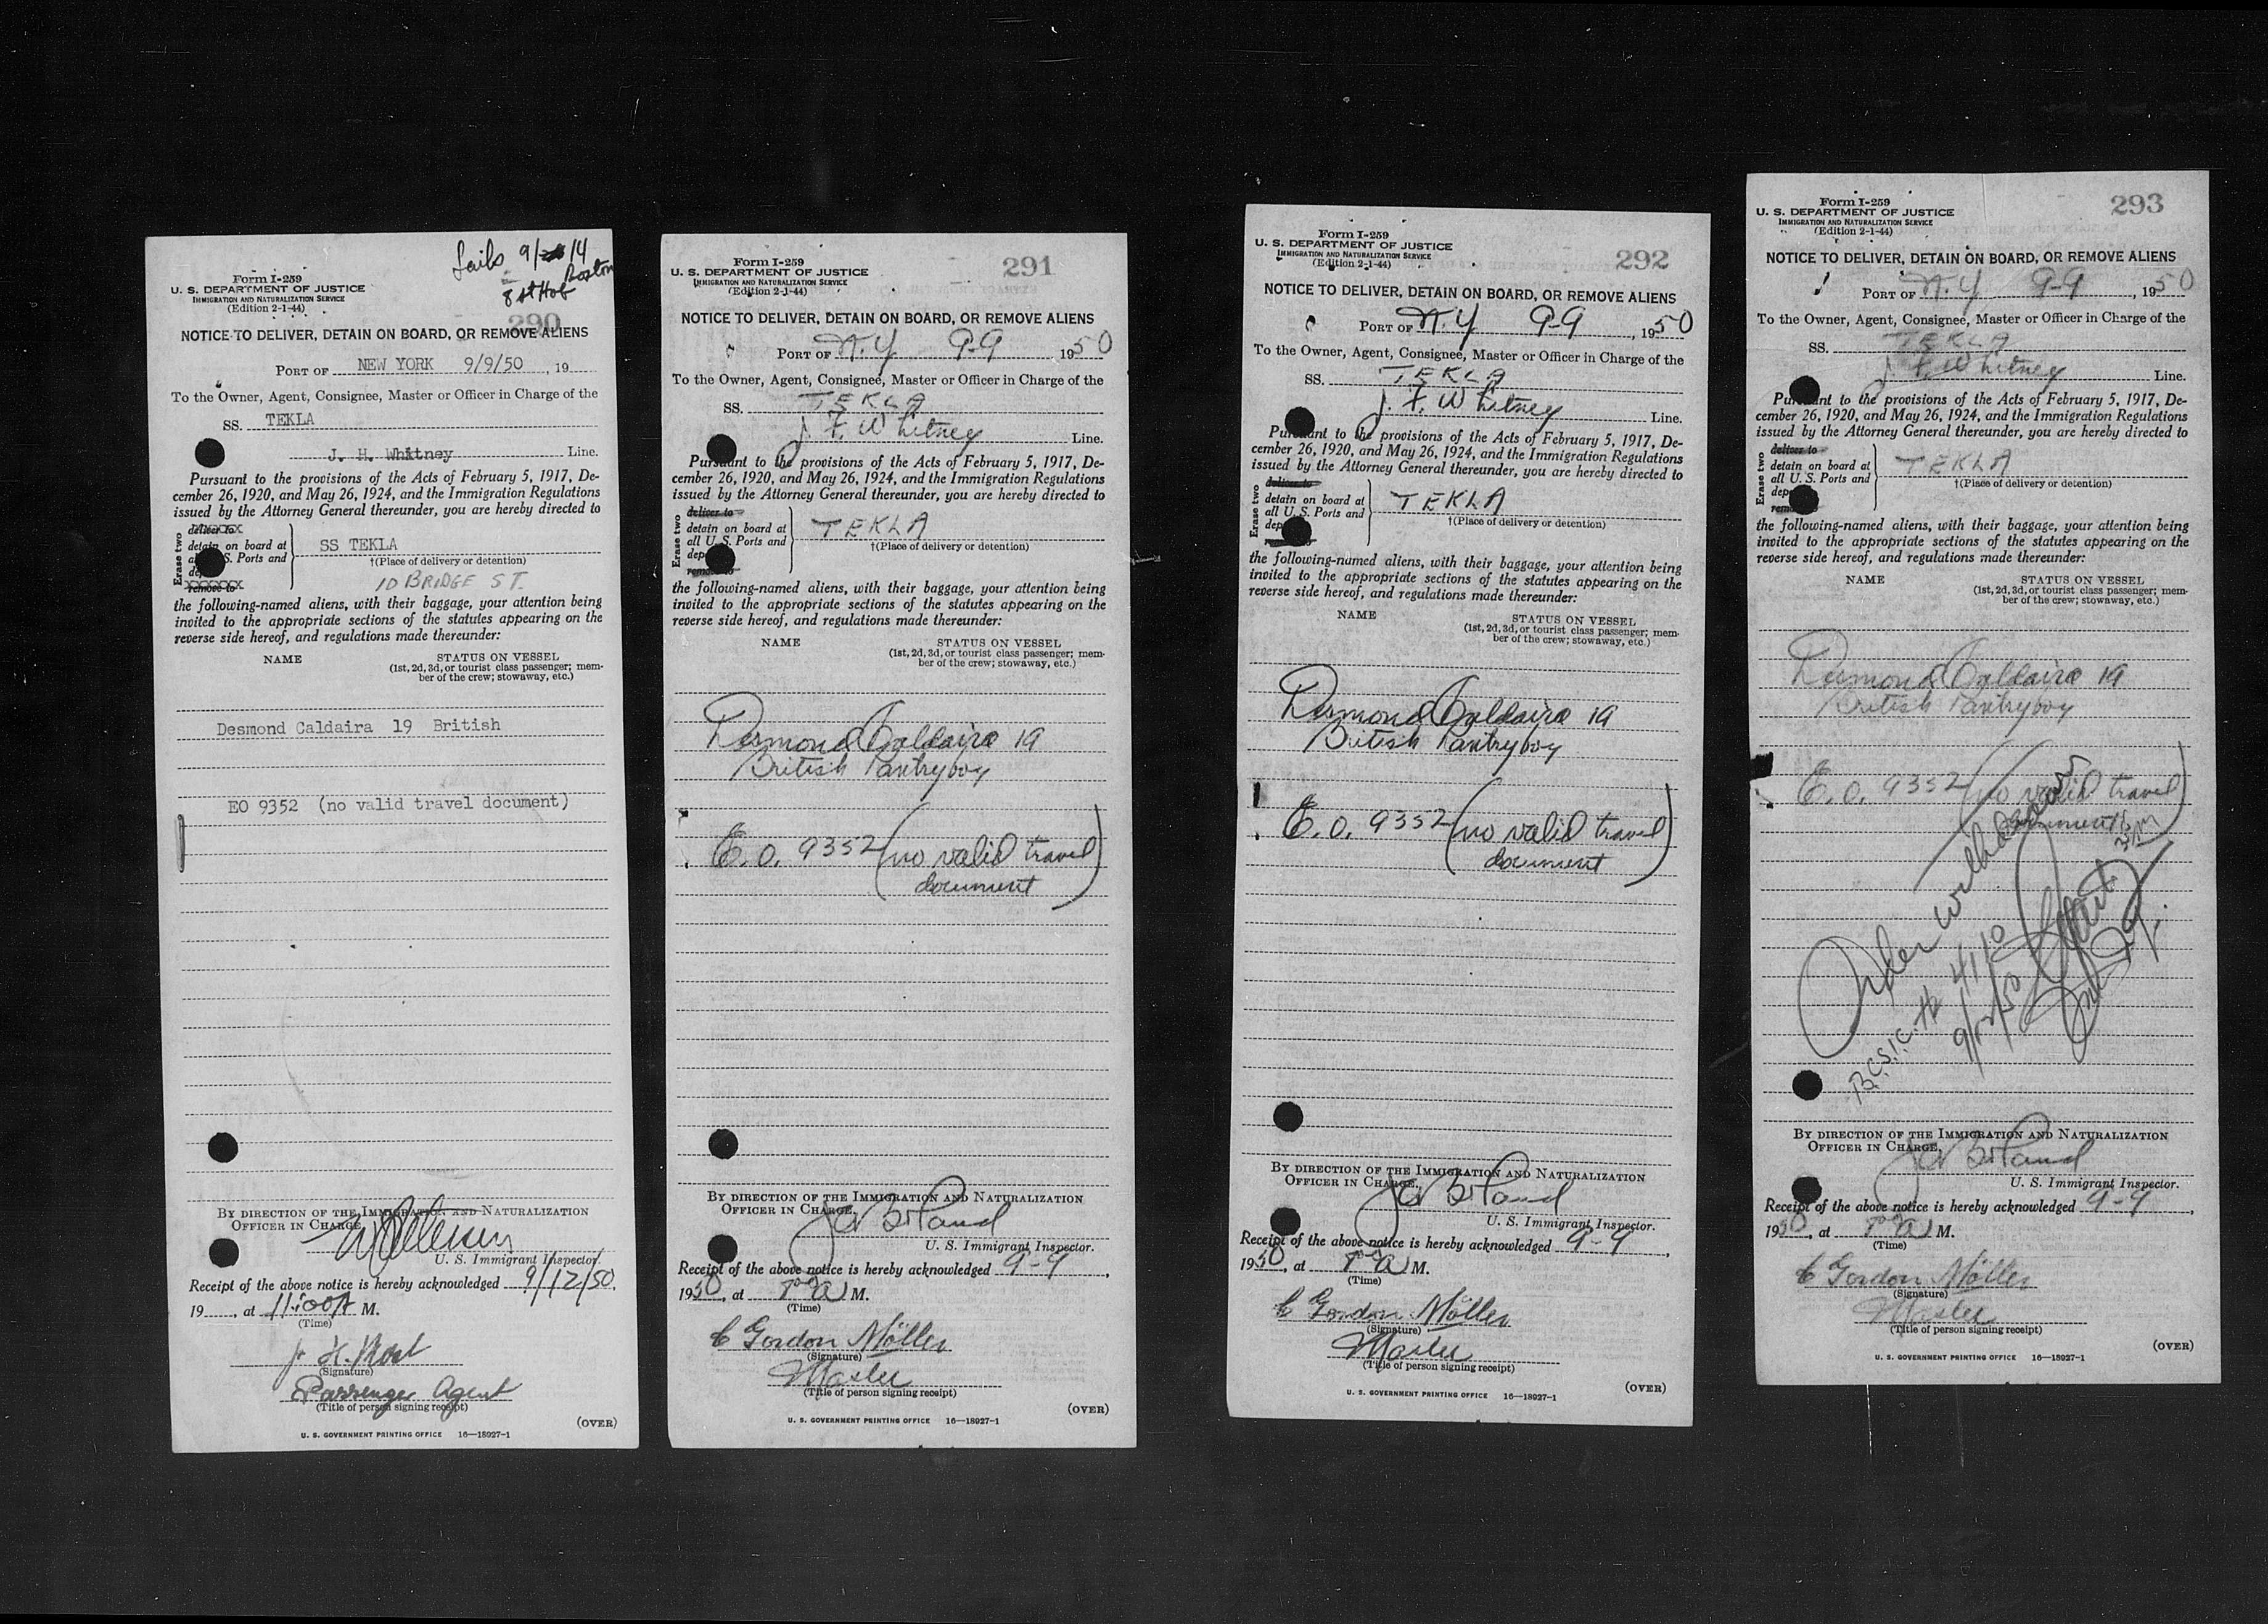 Sails 9/14
Boston
8 st Hob
Form I-259
U. S. DEPARTMENT OF JUSTICE
IMMIGRATION AND NATURALIZATION SERVICE
(Edition 2-1-44)
290
NOTICE TO DELIVER, DETAIN ON BOARD, OR REMOVE ALIENS
PORT OF NEW YORK 9/9/50 , 19
To the Owner, Agent, Consignee, Master or Officer in Charge of the
SS. TEKLA
J. H. Whitney Line.
Pursuant to the provisions of the Acts of February 5, 1917, De-
cember 26, 1920, and May 26, 1924, and the Immigration Regulations
issued by the Attorney General thereunder, you are hereby directed to
Erase two
deliver to
detain on board at
all U. S. Ports and
remove to
SS TEKLA
†(Place of delivery or detention)
10 BRIDGE ST.
the following-named aliens, with their baggage, your attention being
invited to the appropriate sections of the statutes appearing on the
reverse side hereof, and regulations made thereunder:
NAME STATUS ON VESSEL
(1st, 2d, 3d, or tourist class passenger; mem-
ber of the crew; stowaway, etc.)
Desmond Caldaira 19 British
EO 9352 (no valid travel document)
BY DIRECTION OF THE IMMIGRATION AND NATURALIZATION
OFFICER IN CHARGE,
U. S. Immigrant Inspector.
Receipt of the above notice is hereby acknowledged 9/12/50.
19 , at 11:00 A M.
(Time)
(Signature)
Passenger Agent
(Title of person signing receipt)
(OVER)
U. S. GOVERNMENT PRINTING OFFICE 16—18927-1
Form I-259
U. S. DEPARTMENT OF JUSTICE
IMMIGRATION AND NATURALIZATION SERVICE
(Edition 2-1-44)
291
NOTICE TO DELIVER, DETAIN ON BOARD, OR REMOVE ALIENS
PORT OF N.Y 9-9 1950
To the Owner, Agent, Consignee, Master or Officer in Charge of the
SS. TEKLA
J. F. Whitney Line.
Pursuant to the provisions of the Acts of February 5, 1917, De-
cember 26, 1920, and May 26, 1924, and the Immigration Regulations
issued by the Attorney General thereunder, you are hereby directed to
Erase two
deliver to
detain on board at
all U. S. Ports and
remove to
TEKLA
†(Place of delivery or detention)
the following-named aliens, with their baggage, your attention being
invited to the appropriate sections of the statutes appearing on the
reverse side hereof, and regulations made thereunder:
NAME STATUS ON VESSEL
(1st, 2d, 3d, or tourist class passenger; mem-
ber of the crew; stowaway, etc.)
Desmond Caldaira 19
British Pantryboy
E.O. 9352 (no valid travel
document)
BY DIRECTION OF THE IMMIGRATION AND NATURALIZATION
OFFICER IN CHARGE,
U. S. Immigrant Inspector.
Receipt of the above notice is hereby acknowledged 9-9 ,
1950, at A M.
(Time)
C Gordon Möller
(Signature)
Master
(Title of person signing receipt)
(OVER)
U. S. GOVERNMENT PRINTING OFFICE 16—18927-1
Form I-259
U. S. DEPARTMENT OF JUSTICE
IMMIGRATION AND NATURALIZATION SERVICE
(Edition 2-1-44)
292
NOTICE TO DELIVER, DETAIN ON BOARD, OR REMOVE ALIENS
PORT OF N.Y 9-9 , 1950
To the Owner, Agent, Consignee, Master or Officer in Charge of the
SS. TEKLA
J. F. Whitney Line.
Pursuant to the provisions of the Acts of February 5, 1917, De-
cember 26, 1920, and May 26, 1924, and the Immigration Regulations
issued by the Attorney General thereunder, you are hereby directed to
Erase two
deliver to
detain on board at
all U. S. Ports and
TEKLA
†(Place of delivery or detention)
the following-named aliens, with their baggage, your attention being
invited to the appropriate sections of the statutes appearing on the
reverse side hereof, and regulations made thereunder:
NAME STATUS ON VESSEL
(1st, 2d, 3d, or tourist class passenger; mem-
ber of the crew; stowaway, etc.)
Desmond Caldaira 19
British Pantryboy
E.O. 9352 (no valid travel
document)
BY DIRECTION OF THE IMMIGRATION AND NATURALIZATION
OFFICER IN CHARGE,
U. S. Immigrant Inspector.
Receipt of the above notice is hereby acknowledged 9-9 ,
1950, at A M.
(Time)
C Gordon Möller
(Signature)
Master
(Title of person signing receipt)
(OVER)
U. S. GOVERNMENT PRINTING OFFICE 16—18927-1
Form I-259
U. S. DEPARTMENT OF JUSTICE
IMMIGRATION AND NATURALIZATION SERVICE
(Edition 2-1-44)
293
NOTICE TO DELIVER, DETAIN ON BOARD, OR REMOVE ALIENS
PORT OF N.Y 9-9 , 1950
To the Owner, Agent, Consignee, Master or Officer in Charge of the
SS. TEKLA
J. F. Whitney Line.
Pursuant to the provisions of the Acts of February 5, 1917, De-
cember 26, 1920, and May 26, 1924, and the Immigration Regulations
issued by the Attorney General thereunder, you are hereby directed to
Erase two
deliver to
detain on board at
all U. S. Ports and
TEKLA
†(Place of delivery or detention)
the following-named aliens, with their baggage, your attention being
invited to the appropriate sections of the statutes appearing on the
reverse side hereof, and regulations made thereunder:
NAME STATUS ON VESSEL
(1st, 2d, 3d, or tourist class passenger; mem-
ber of the crew; stowaway, etc.)
Desmond Caldaira 19
British Pantryboy
E.O. 9352 (no valid travel
document)
Order withdrawn
9/12/50
BY DIRECTION OF THE IMMIGRATION AND NATURALIZATION
OFFICER IN CHARGE,
U. S. Immigrant Inspector.
Receipt of the above notice is hereby acknowledged 9-9 ,
1950, at A M.
(Time)
C Gordon Möller
(Signature)
Master
(Title of person signing receipt)
(OVER)
U. S. GOVERNMENT PRINTING OFFICE 16—18927-1